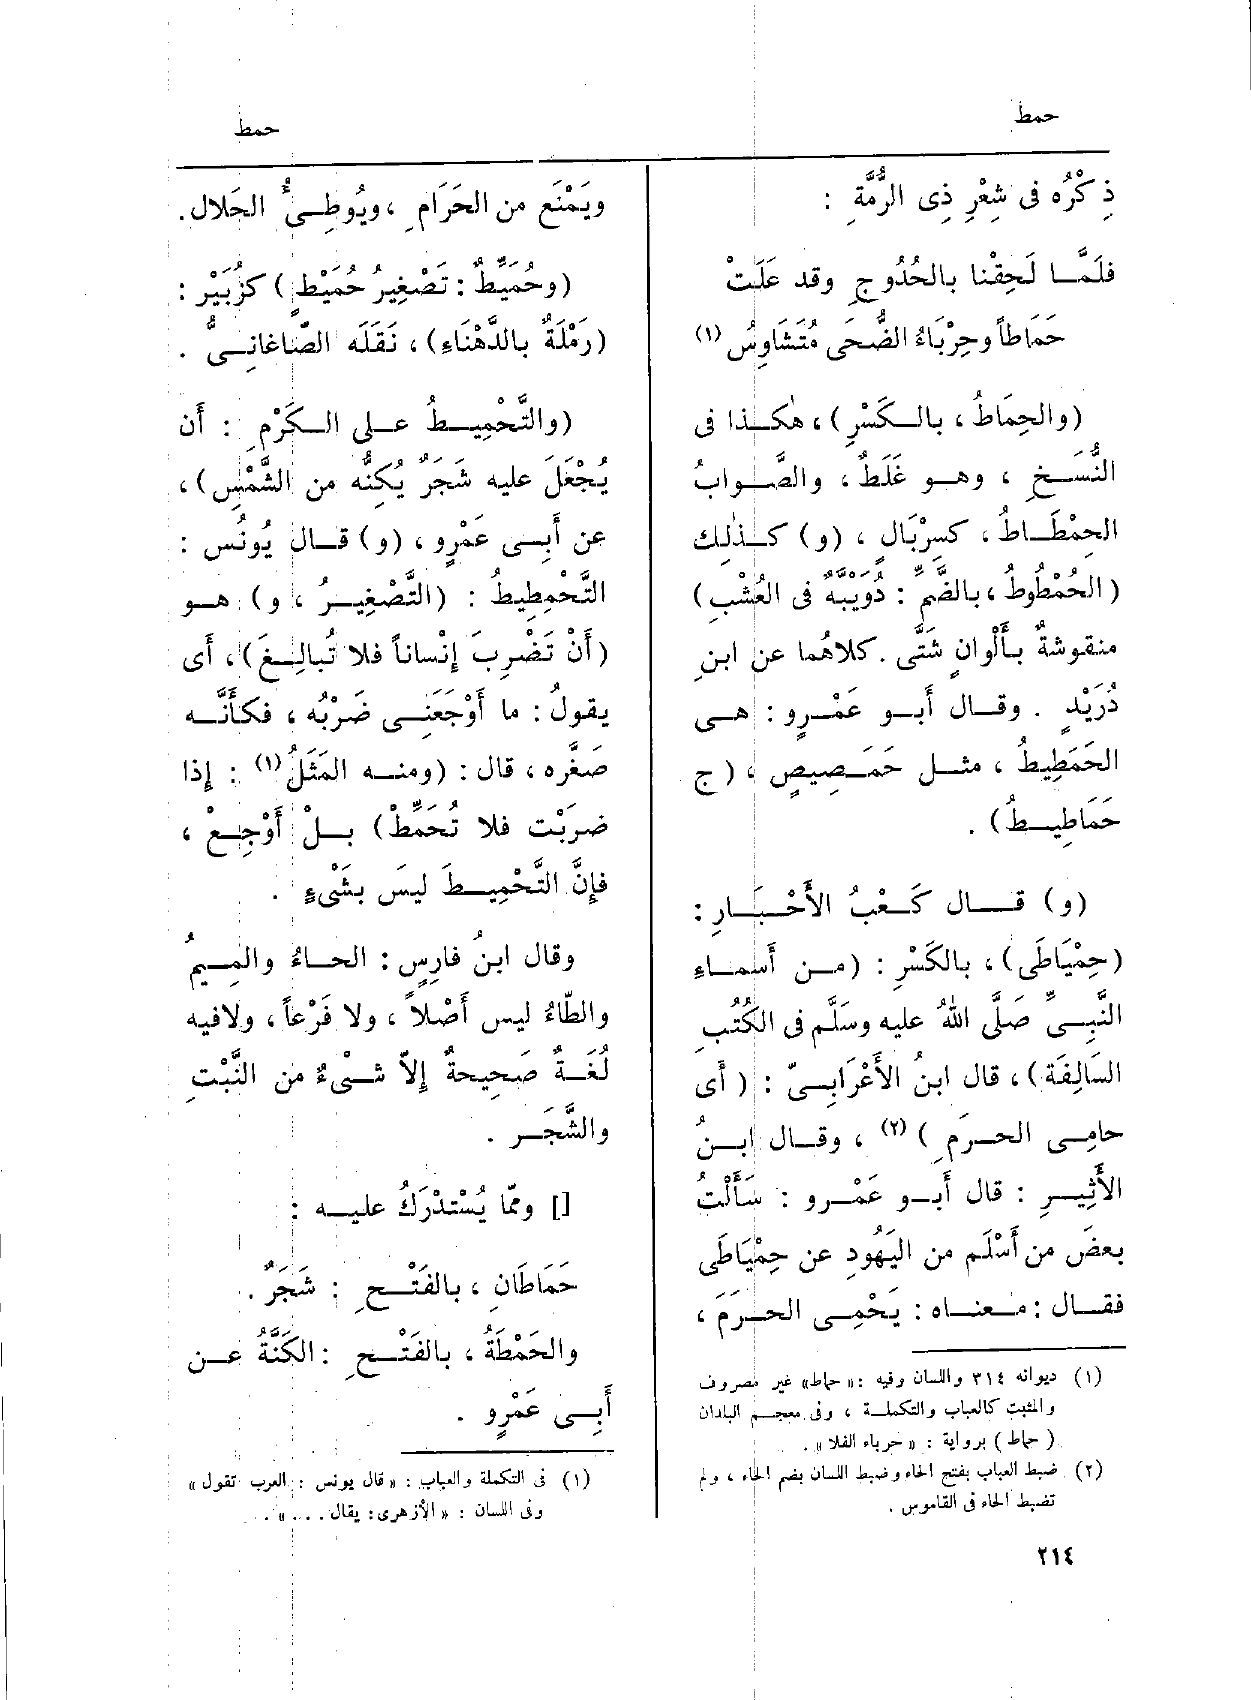 حمط
حمط
ذِكْرُه فى شِعْرِ ذِى الرُّمَّةِ :
فلَمَّــا لَحِقْنا بالحُدُوجِ وقد عَلَتْ
حَمَاطاً وحِرْبَاءُ الضُّحَى مُتَشَاوِسُ (١)
(والحِمَاطُ ، بالــكَسْرِ) ، هٰكــذا فى
النُّســخِ ، وهــو غَلَطٌ ، والصَّــوابُ
الحِمْطَــاطُ ، كسِرْبَالٍ ، (و) كــذٰلِك
(الحُمْطُوطُ ، بالضَّمِّ : دُوَيْبَّةٌ فى العُشْبِ)
منقوشةٌ بأَلْوانٍ شَتَّى . كلاهُما عن ابنِ
دُرَيْدٍ . وقــال أَبــو عَمْــرٍو : هــى
الحَمَطِيطُ ، مثــل حَمَــصِيصٍ ، (ج
حَمَاطِيــطُ) .
(و) قــــال كَــعْبُ الأَحْبَــارِ :
(حِمْيَاطَى) ، بالكَسْرِ : (مــن أَسمــاءِ
النَّبِــىِّ صَلَّى اللهُ عليه وسَلَّم فى الكُتُبِ
السَالِفَة) ، قال ابنُ الأَعْرَابِــىّ : ( أَى
حامِــى الحــرَمِ ) (٢) ، وقــال ابــنُ
الأَثِيــرِ : قال أَبــو عَمْــرو : سَأَلْتُ
بعضَ من أَسْلَم من اليَهُودِ عن حِمْيَاطَى
فقــال : معنــاه : يَحْمِــى الحــرَمَ ،
(١) ديوانه ٣١٤ واللسان وفيه : «حماط» غير مصروف
والمثبت كالعباب والتكملــة ، وفى معجــم البلدان
( حماط ) برواية : « حرباء الفلا » .
(٢) ضبط العباب بفتح الحاء وضبط اللسان بضم الحاء ، ولم
تضبط الحاء فى القاموس .
ويَمْنَع من الحَرَامِ ، ويُوطِــىُّ الحَلال .
(وحُمَيِّطٌ : تَصْغِيرُ حُمَيْطٍ ) كزُبَيْر :
(رَمْلَةٌ بالدَّهْنَاءِ) ، نَقَلَه الصّاغانِــىُّ .
(والتَّحْمِيــطُ علــى الــكَرْمِ : أَن
يُجْعَلَ عليه شَجَرٌ يُكِنُّه من الشَّمْسِ) ،
عن أَبِــى عَمْرٍو ، (و) قــال يُونُس :
التَّحْمِطِيطُ : (التَّصْغِيــرُ ، و) هــو
(أَنْ تَضْرِبَ إِنْساناً فلا تُبالِــغَ) ، أَى
يقولُ : ما أَوْجَعَنِــى ضَرْبُه ، فكأَنَّــه
صَغَّره ، قال : (ومنــه المَثَلُ (١) : إِذا
ضَرَبْت فلا تُحَمِّطْ) بــلْ أَوْجِــعْ ،
فإِنَّ التَّحْمِيــطَ ليسَ بشَىْءٍ .
وقال ابنُ فارِسٍ : الحــاءُ والمِــيمُ
والطّاءُ ليس أَصْلاً ، ولا فَرْعاً ، ولافيه
لُغَــةٌ صَحِيحةٌ إِلاّ شــىْءٌ من النَّبْتِ
والشَّجَــر .
[] وممّا يُسْتدْرَكُ عليــه :
حَمَاطَانِ ، بالفَتْــحِ : شَجَرٌ .
والحَمْطَةُ ، بالفَتْــحِ : الكُنَّةُ عــن
أَبِــى عَمْرٍو .
(١) فى التكملة والعباب : « قال يونس : العرب تقول »
وفى اللسان : « الأزهرى : يقال .... » .
٢١٤